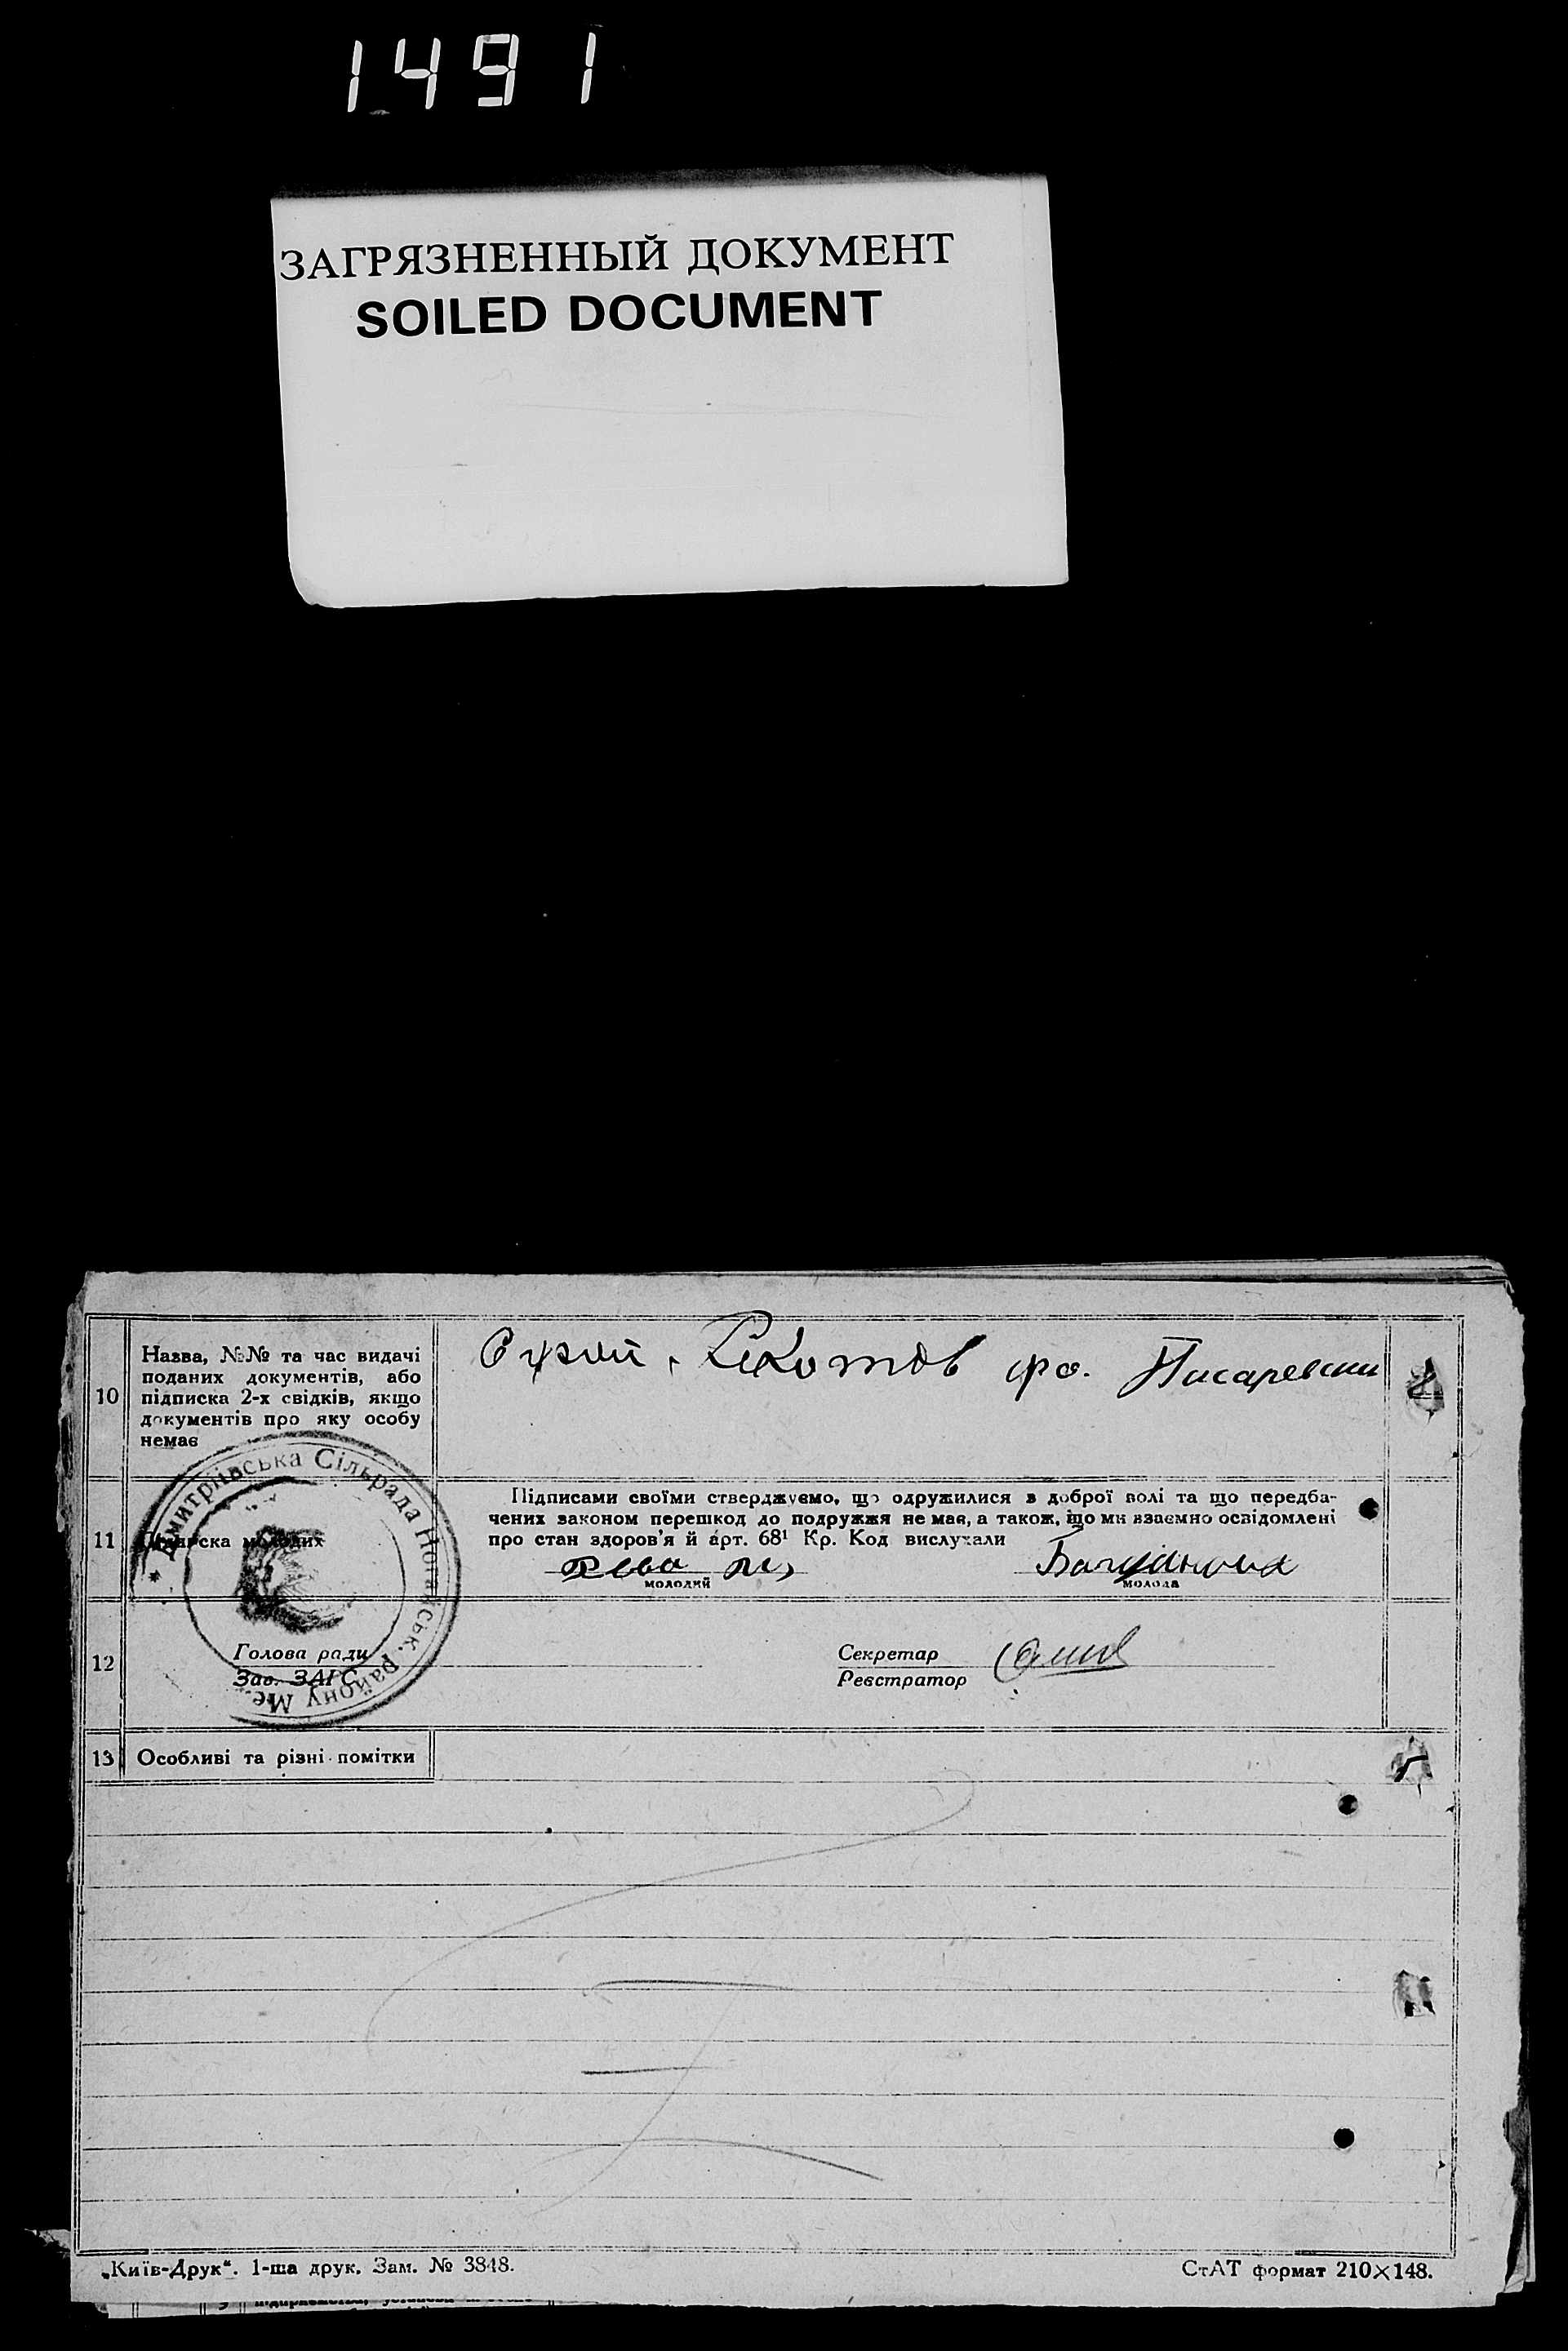 1491
ЗАГРЯЗНЕННЫЙ ДОКУМЕНТ
SOILED DOCUMENT
10
Назва, №№ та час видачі
поданих документів, або
підписка 2-х свідків, якщо
документів про яку особу
немає
фо. Писаревски
Дмитріївська Сільрада району
11
Підписка молодих
Підписами своїми стверджуємо, що одружилися в доброї волі та що передба-
чених законом перешкод до подружжя не має, а також, що ми взаємно освідомлені
про стан здоров'я й арт. 68¹ Кр. Код вислухали
молодий
молода
12
Голова ради
Зав. ЗАГС
Секретар
Реєстратор
13
Особливі та різні помітки
„Київ-Друк“. 1-ша друк. Зам. № 3848.
СтАТ формат 210×148.